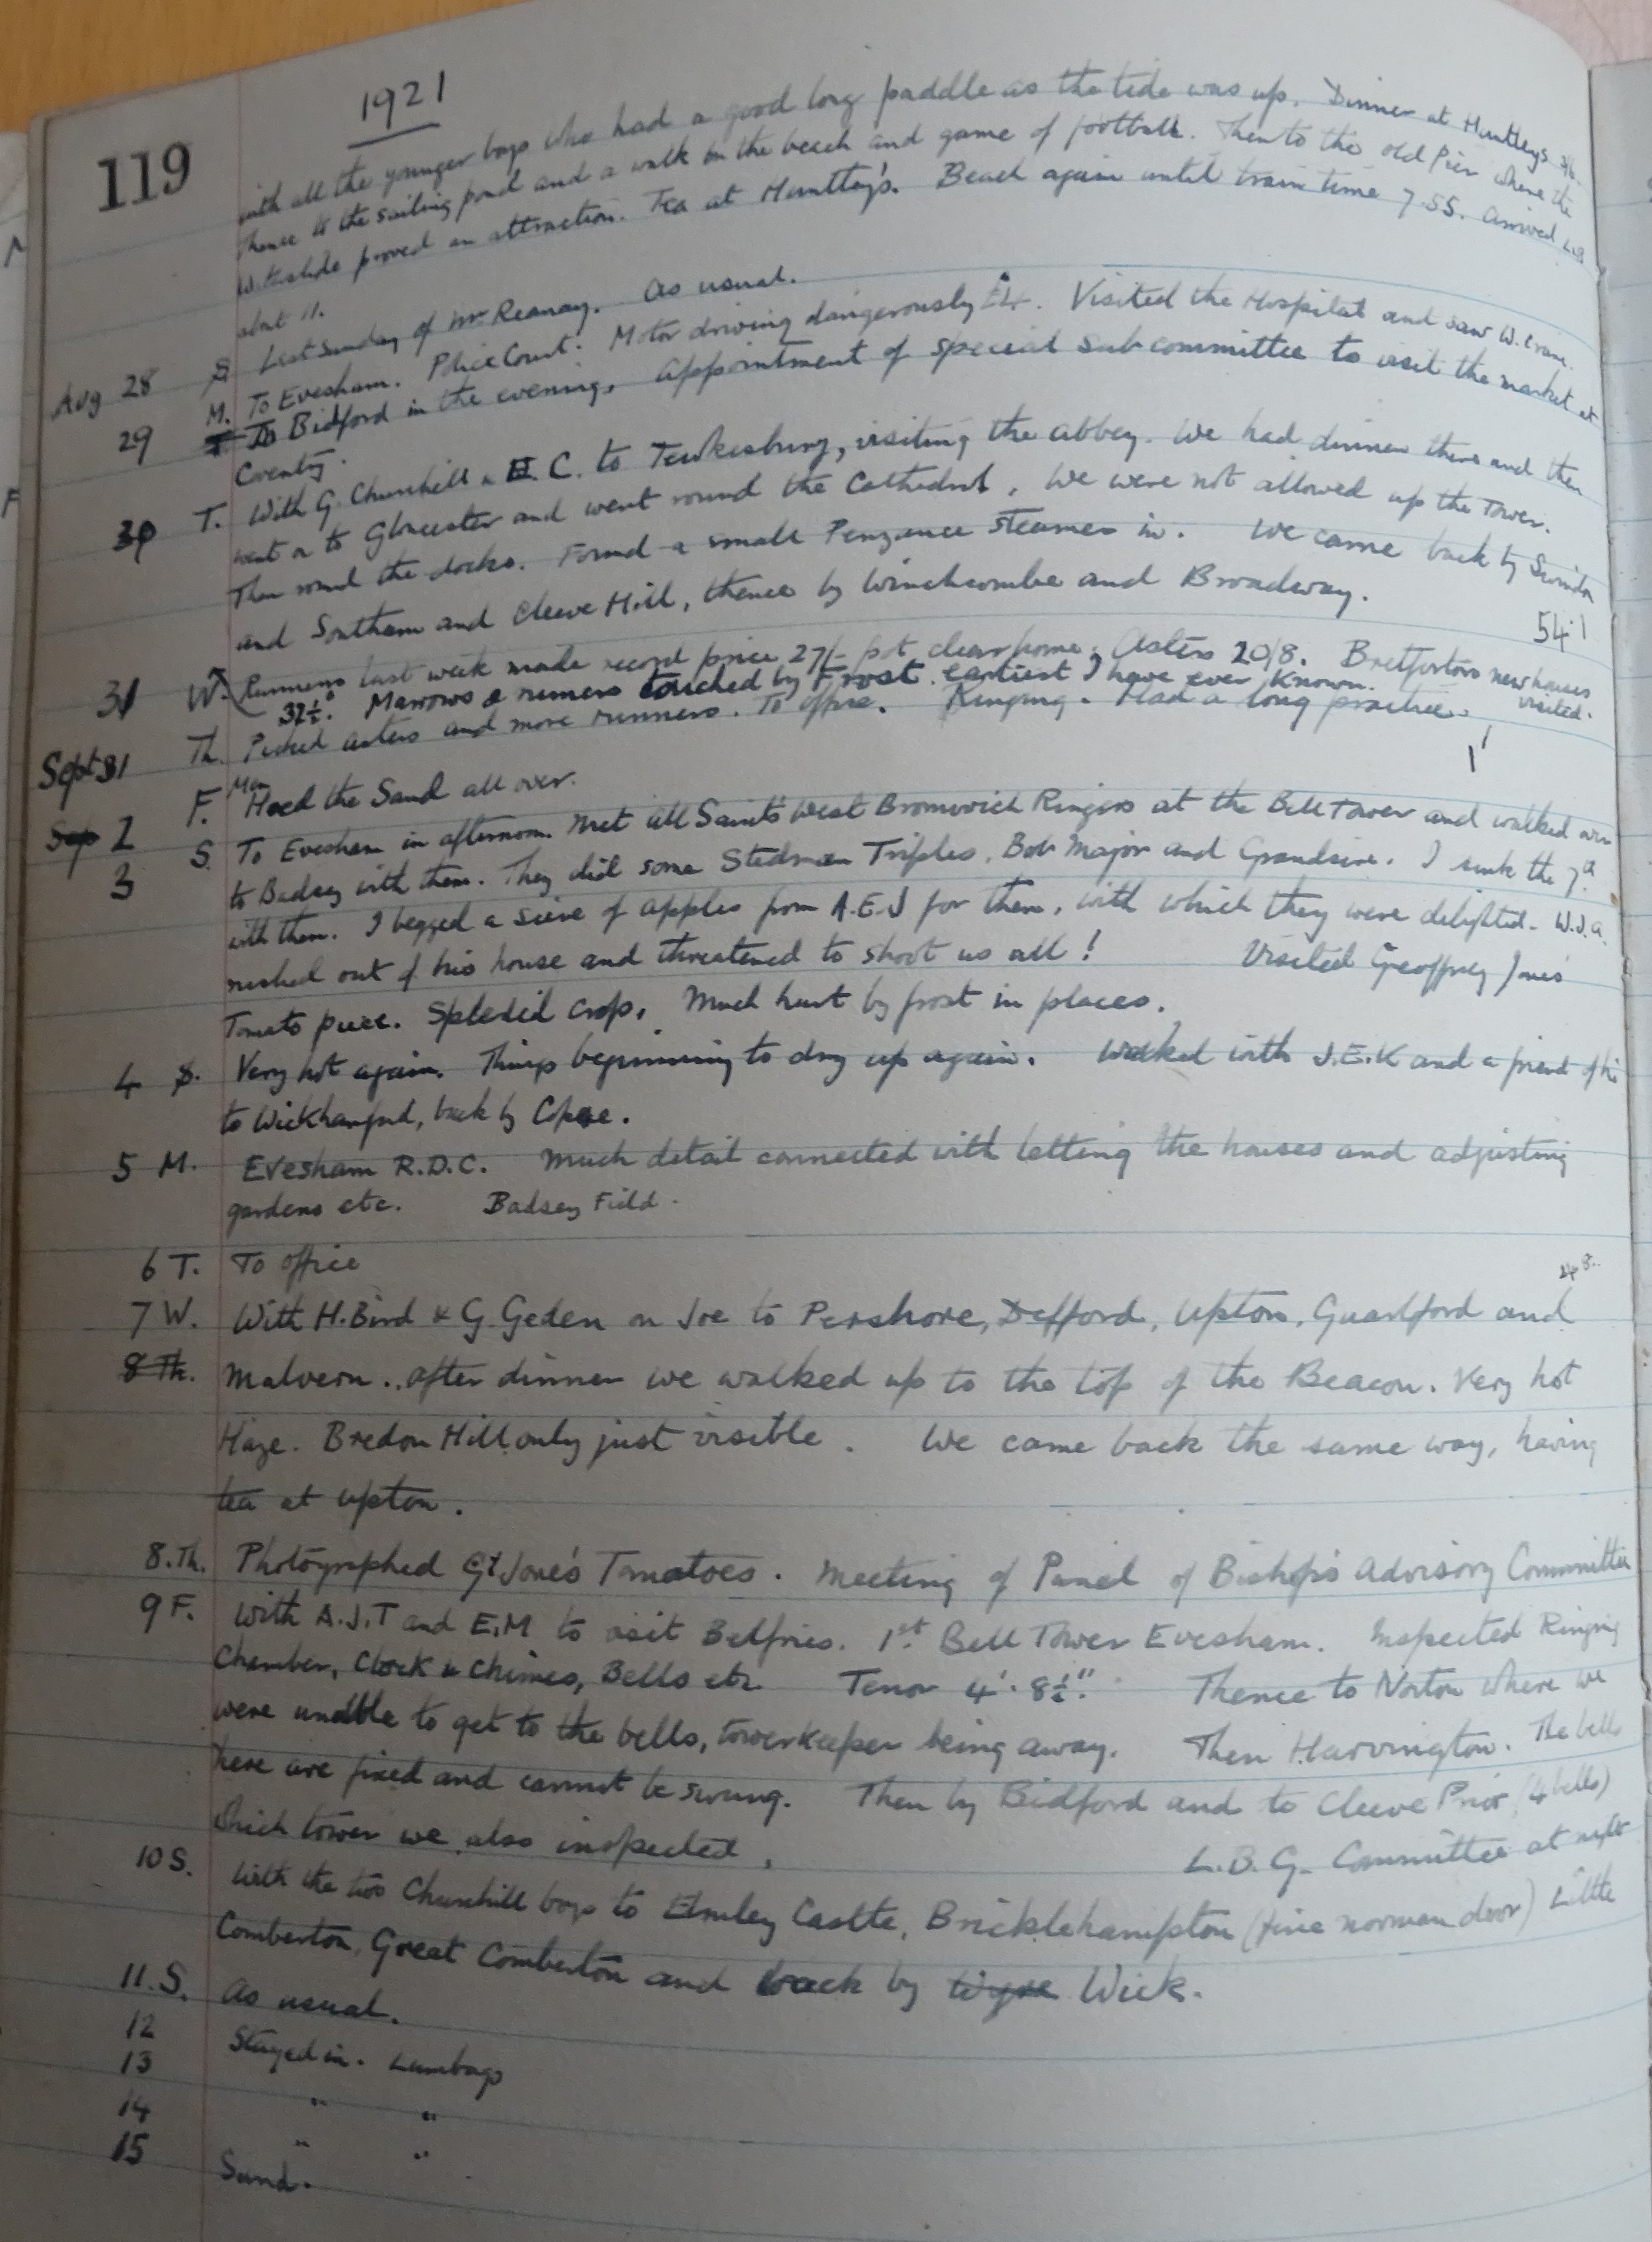 119
1921
with all the younger boys who had a good long paddle as the tide was up. Dinner at Huntleys
Thence to the sailing pond and a walk on the beach and game of football. Then to the old Pier where the
Waterslide proved an attraction. Tea at Huntley's. Beach again until train time 7.55. Arrived
about 11.
Aug 28 S Last Sunday of Mr Reanay. As usual.
29 M. To Evesham. Police Court. Motor driving dangerously £4. Visited the Hospital and saw W. Crane.
T To Bidford in the evening. Appointment of special sub committee to visit the market at
Coventry.
30 T. With G. Churchill & C. to Tewkesbury, visiting the abbey. We had dinner there and then
went on to Gloucester and went round the Cathedral. We were not allowed up the Tower.
Then round the docks. Found a small Penzance steamer in. We came back by Swindon
and Southam and Cleeve Hill, thence by Winchcombe and Broadway.
54
31 W. Runners last week made record price 27/- pot clear home. Asters 20/8. Bretforton new houses visited.
32½°. Marrows & runners touched by Frost. earliest I have ever known.
Sept 1 Th. Picked asters and more runners. To office. Ringing. Had a long practice.
1
Sep 2 F. Man Hoed the Sand all over.
3 S. To Evesham in afternoon. Met All Saints West Bromwich Ringers at the Bell Tower and walked over
to Badsey with them. They did some Stedman Triples, Bob Major and Grandsire. I sunk the 7th
with them. I begged a sieve of apples from A.E.J for them, with which they were delighted. W.J.A.
rushed out of his house and threatened to shoot us all! Visited Geoffrey Jones'
Tomato piece. Splendid crop. Much hurt by frost in places.
4 S. Very hot again. Things beginning to dry up again. Walked with J.E.K and a friend of his
to Wickhamford, back by Copse.
5 M. Evesham R.D.C. Much detail connected with letting the houses and adjusting
gardens etc. Badsey Field.
6 T. To office
48
7 W. With H. Bird & G. Geden on Joe to Pershore, Defford, Upton, Guarlford and
8 Th. Malvern. After dinner we walked up to the top of the Beacon. Very hot
Haze. Bredon Hill only just visible. We came back the same way, having
tea at Upton.
8. Th. Photographed G Jones's Tomatoes. Meeting of Panel of Bishop's Advisory Committee
9 F. With A.J.T and E.M to visit Belfries. 1st Bell Tower Evesham. Inspected Ringing
Chamber, Clock & Chimes, Bells etc. Tenor 4'. 8½". Thence to Norton where we
were unable to get to the bells, towerkeeper being away. Then Harvington. The bells
here are fixed and cannot be swung. Then by Bidford and to Cleeve Prior (4 bells)
which tower we also inspected. L.B.G. Committee at night
10 S. With the two Churchill boys to Elmley Castle, Bricklehampton (fine norman door) Little
Comberton, Great Comberton and back by Wyre Wick.
11. S. As usual.
12 Stayed in. Lumbago
13 " "
14 " "
15 Sand.